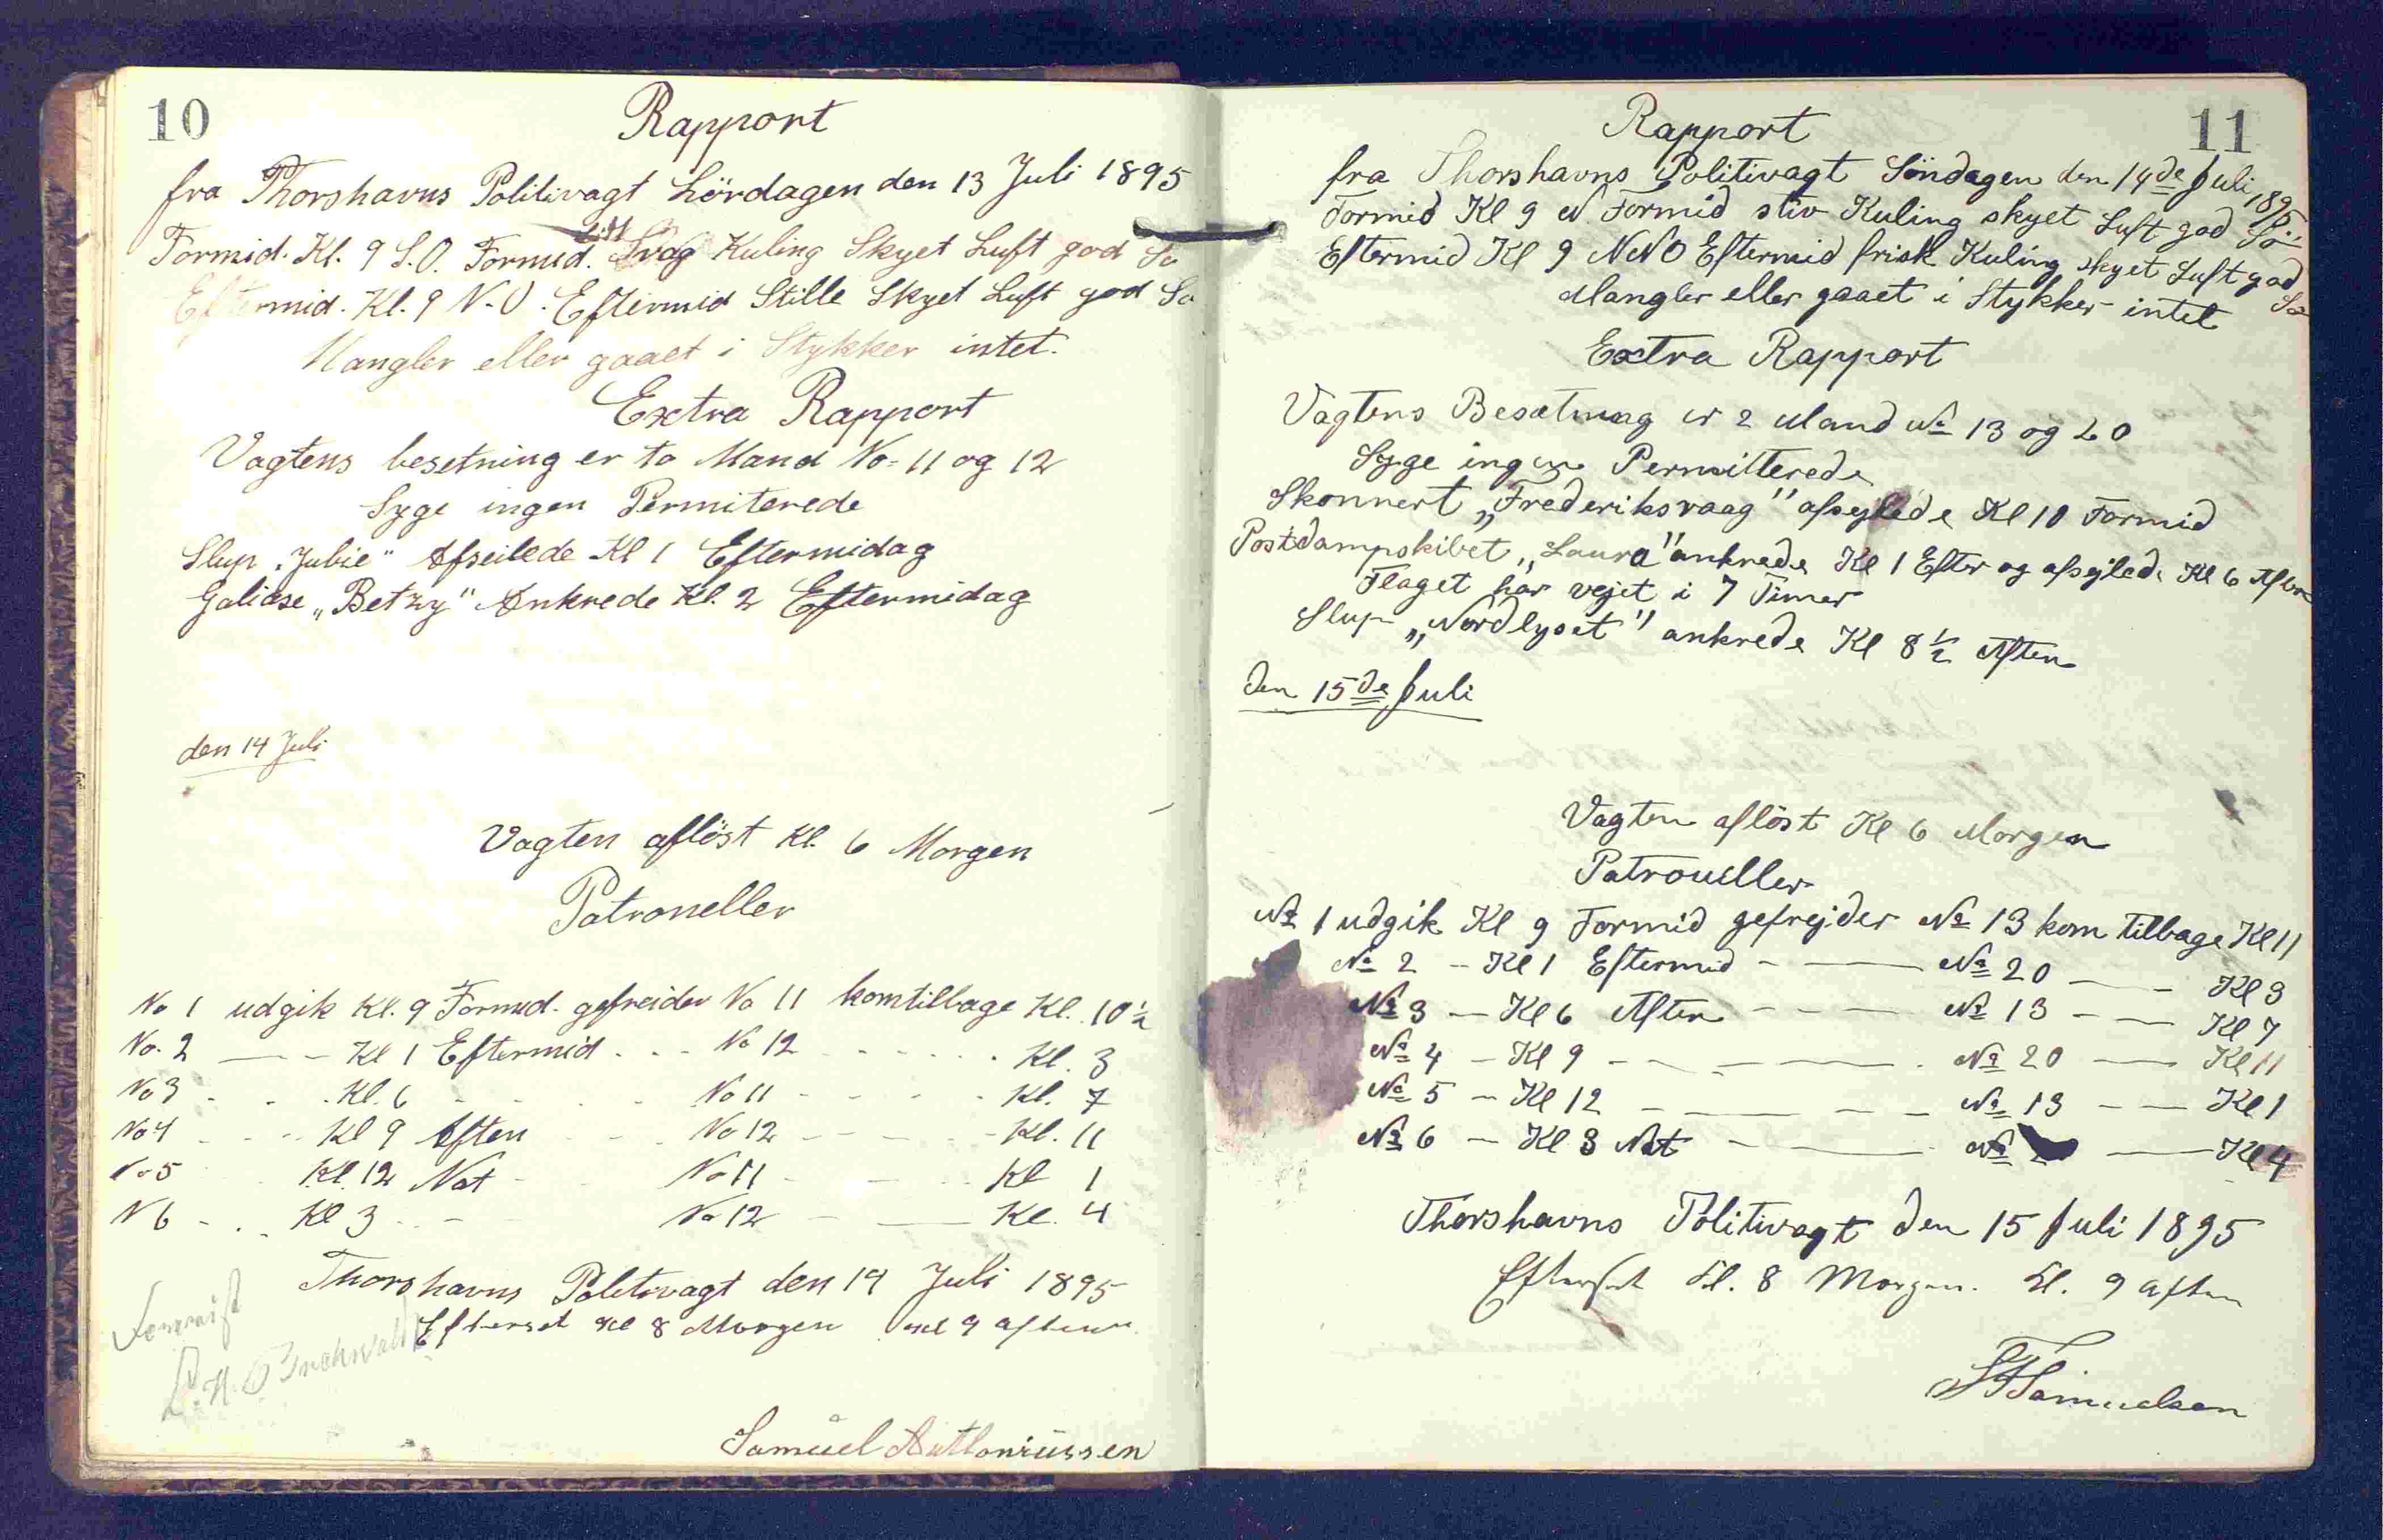 10
Rapport
fra Thorshavns Politivagt Lördagen den 13 Juli 1895
Formid. Kl. 9 S.O. Formid. Svag Kuling Skyet Luft god Sö
Eftermid. Kl. 9 N.O. Eftermid Stille Skyet Luft god Sö
Mangler eller gaaet i Stykker intet.
Extra Rapport
Vagtens besetning er to Mand No= 11 og 12
Syge ingen Permiterede
Slup „Julie" Afseilede Kl 1 Eftermidag
Galiase „Betzy" Ankrede Kl. 2 Eftermidag
den 14 Juli
Vagten aflöst Kl. 6 Morgen
Patroneller
No 1 udgik Kl. 9 Formid. gefreider No 11 komtilbage Kl. 10½
No. 2 —— - Kl 1 Eftermid . . . No 12 - - - - - . Kl. 3
No 3 - . . Kl. 6 - - - - - No 11 - - - - Kl. 7
No 4 - - - Kl 9 Aften - - . No 12 - - - - - Kl. 11
No 5 Kl. 12 Nat - - No 11 - - - - Kl 1
N 6 - . . Kl 3 . . - - No 12 — —— Kl. 4
Thorshavns Politivagt den 14 Juli 1895
Efterset Kl 8 Morgen Kl 9 aften
Samuel Anthoniussen
11
Rapport
fra Thorshavns Politivagt Söndagen den 14de Juli 1895
Formid Kl 9 N Formid stiv Kuling skyet Luft god Sö
Eftermid Kl 9 NNO Eftermid frisk Kuling skyet Luft god Sö
Mangler eller gaaet i Stykker intet
Extra Rapport
Vagtens Besætning er 2 Mand No 13 og 20
Syge ingen Permitterede
Skonnert „Frederiksvaag" afsejlede Kl 10 Formid
Postdampskibet „Laura" ankrede Kl 1 Efter og afsejlede Kl 6 Aften
Flaget har vejet i 7 Timer
Slup „Nordlyset" ankrede Kl 8½ Aften
den 15de Juli
Vagten aflöst Kl 6 Morgen
Patrouiller
No 1 udgik Kl 9 Formid gefrejder No 13 kom tilbage Kl 11
No 2 - Kl 1 Eftermid - —— No 20 —— - Kl 3
No 3 — Kl 6 Aften - - — - No 13 - - — Kl 7
No 4 - Kl 9 - — - —— . No 20 —— Kl 11
No 5 - Kl 12 - —— - - No 13 - — Kl 1
No 6 — Kl 3 Nat - —— No —— Kl 4
Thorshavns Politivagt den 15 Juli 1895
Efterset Kl. 8 Morgen. Kl. 9 aften
Samuelsen